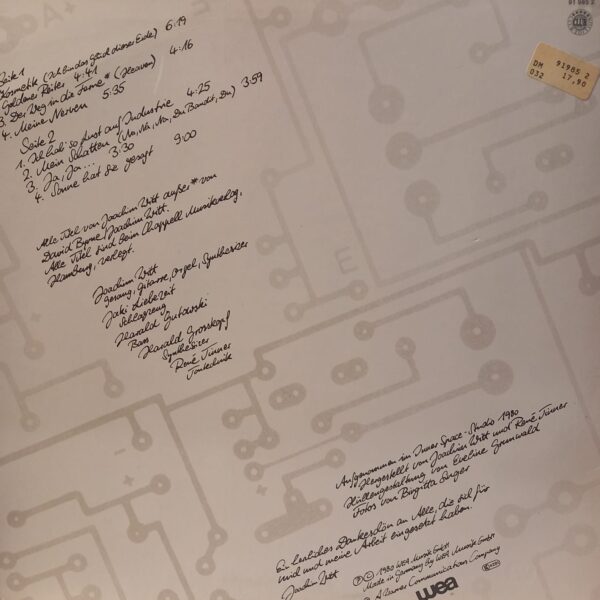 Seite 1
Kosmetik (Ich bin das Glück dieser Erde) 6:19
Goldener Reiter 4:41
3. Der Weg in die Ferne* (Heaven) 4:16
4. Meine Nerven 5:35
Seite 2
1. Ich hab' so Lust auf Industrie 4:25
2. Mein Schatten (Na, Na, Na, Du Bandit, Du) 3:59
3. Ja, Ja... 3:30
4. Sonne hat sie gesagt 9:00
Alle Titel von Joachim Witt außer * von
David Byrne/Joachim Witt.
Alle Titel sind beim Chappell Musikverlag,
Hamburg, verlegt.
Joachim Witt
Gesang, Gitarre, Orgel, Synthesizer
Jaki Liebezeit
Schlagzeug
Harald Gutowski
Bass
Harald Grosskopf
Synthesizer
René Tinner
Tontechnik
DM 91985 2
032 17,90
E
Aufgenommen im Inner Space-Studio 1980
Hergestellt von Joachim Witt und René Tinner
Hüllengestaltung von Eveline Grunwald
Fotos von Birgitta Unger
Ein herzliches Dankeschön an Alle, die sich für
mich und meine Arbeit eingesetzt haben.
Joachim Witt
Ⓟ © 1980 WEA Musik GmbH
Made in Germany By WEA Musik GmbH
A Warner Communications Company
wea